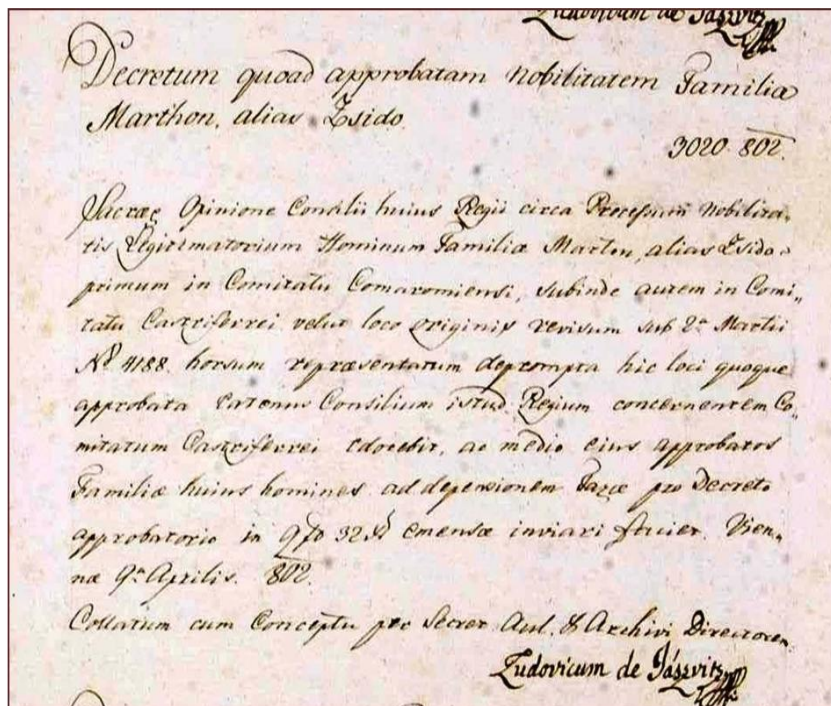 Ludovicum de Jászvitz
Decretum quoad approbatam Nobilitatem Familiæ
Marthon, alias Zsido.
3020. 802.
Sacræ Opinione Consilii huius Regii circa Processum Nobilita-
tis Legitimatorium Hominum Familiæ Marton, alias Zsido
primum in Comitatu Comaromiensi, subinde autem in Comi„
tatu Castriferrei velut loco originis revisum sub 2a Martii
No 4188. horsum repræsentatum deprompta hic loci quoque
approbata eatenus Consilium istud Regium concernentem Co„
mitatum Castriferrei edocebit, ac medio eius approbatos
Familiæ huius homines ad depensionem Taxæ pro Decreto
approbatorio in 32 emensæ inviari faciet. Vien„
næ 9a Aprilis. 802.
Collatum cum Conceptu per Secret. Aul. & Archivi Directorem
Ludovicum de Jászvitz